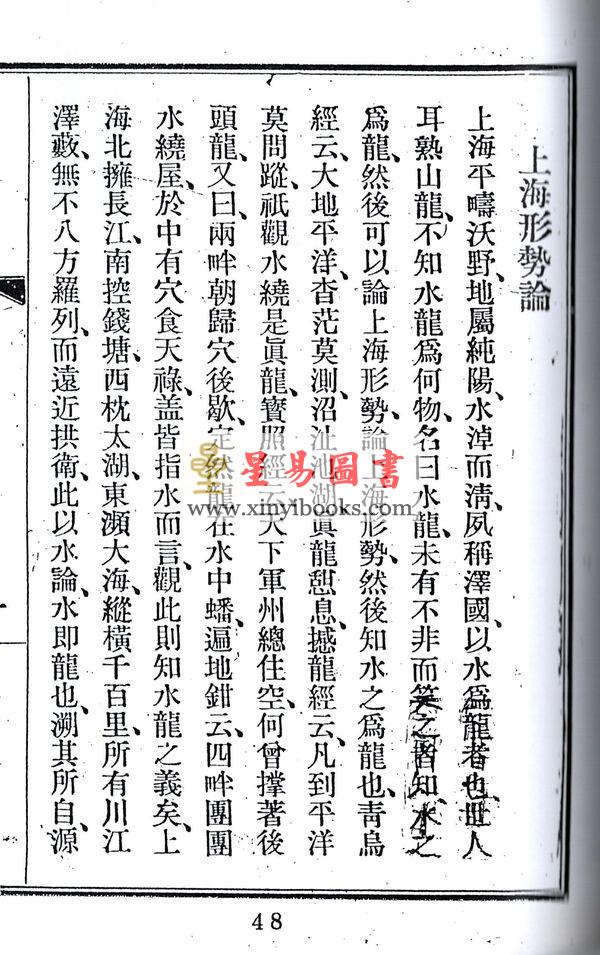 上海形勢論
上海平疇沃野、地屬純陽、水淖而淸、夙稱澤國、以水爲龍者也、世人
耳熟山龍、不知水龍爲何物、名曰水龍、未有不非而笑之、皆知水之
爲龍、然後可以論上海形勢、論上海形勢、然後知水之爲龍也、靑烏
經云、大地平洋、杳茫莫測、沼沚池湖、眞龍憩息、撼龍經云、凡到平洋
莫問蹤、祇觀水繞是眞龍、寶照經云、天下軍州總住空、何曾撑著後
頭龍、又曰、兩畔朝歸穴後歇、定然龍在水中蟠、遍地鉗云、四畔團團
水繞屋、於中有穴食天祿、盖皆指水而言、觀此則知水龍之義矣、上
海北擁長江、南控錢塘、西枕太湖、東瀕大海、縱橫千百里、所有川江
澤藪、無不八方羅列、而遠近拱衛、此以水論、水即龍也、溯其所自、源
星易圖書
www.xinyibooks.com
48